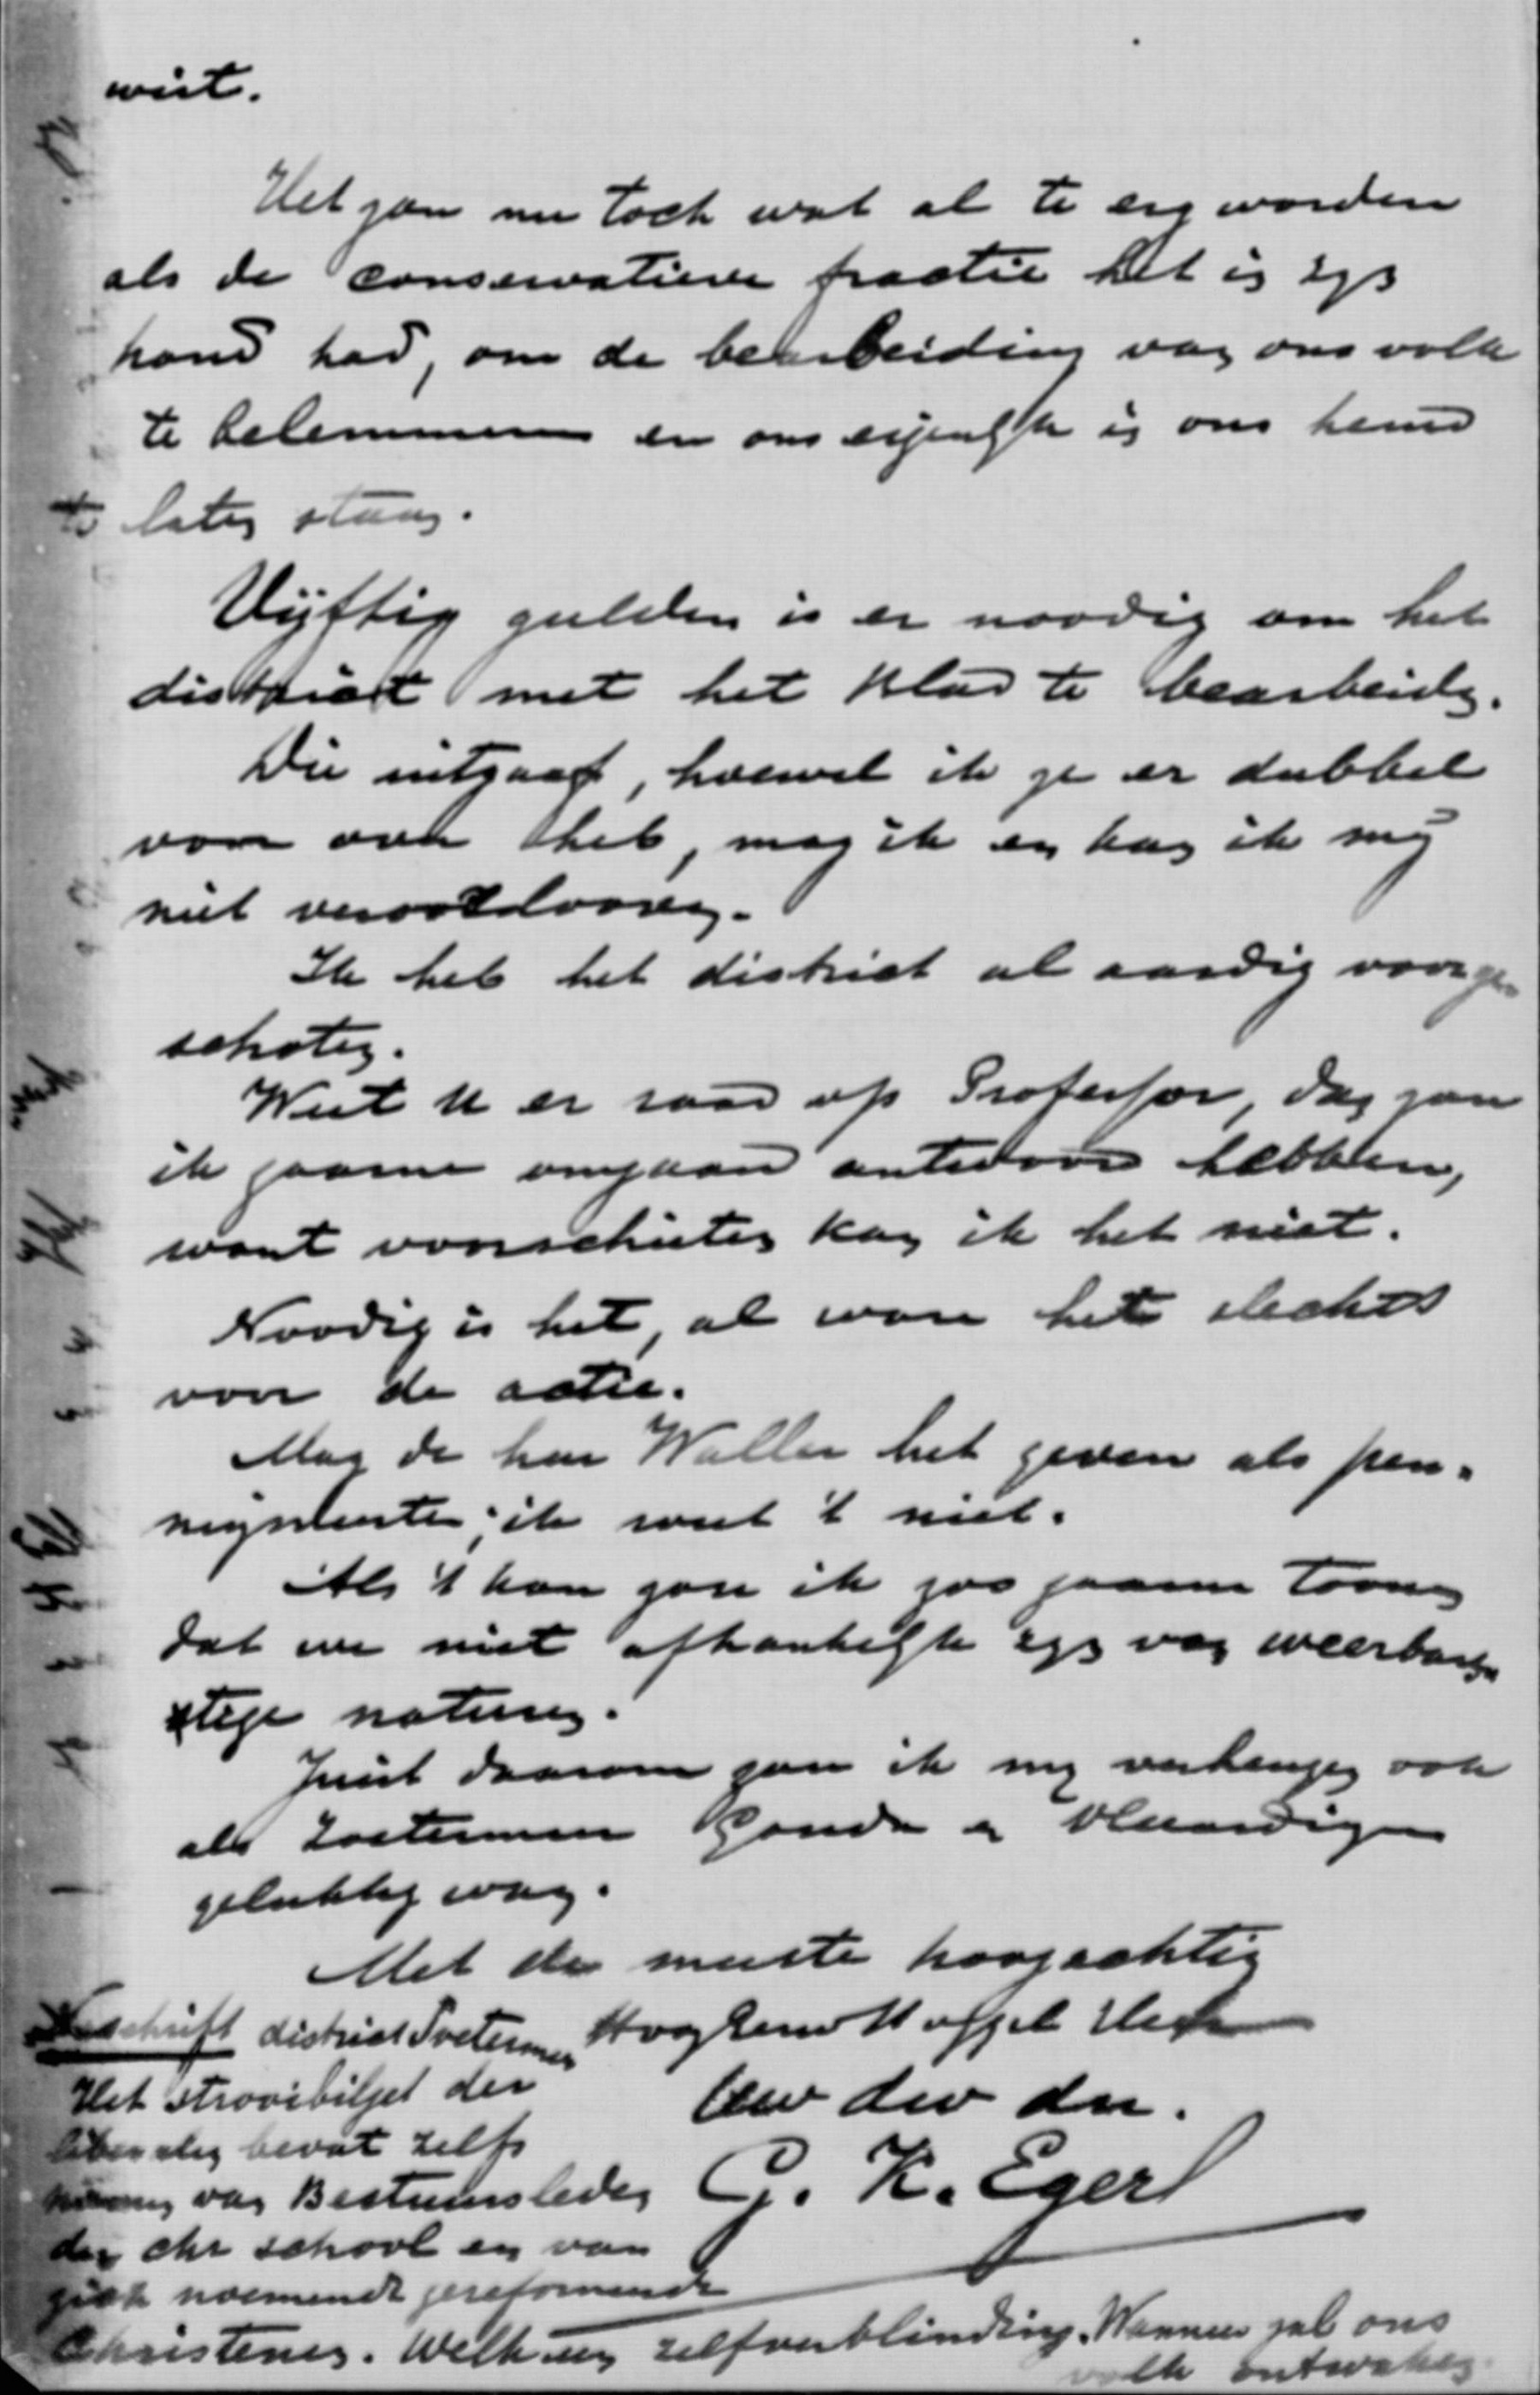 wist.
Het zou nu toch wat al te erg worden
als de conservatieve fractie het in zijn
hand had, om de bearbeiding van ons volk
te belemmeren en ons eigenlijk in ons hemd
te laten staan.
Vijftig gulden is er noodig om het
district met het blad te bearbeiden.
Die uitgaaf, hoewel ik ze er dubbel
voor over heb, mag ik en kan ik mij
niet veroorloven.
Ik heb het district al aardig voorge
schoten.
Weet U er raad op Professor, dan zou
ik gaarne omgaand antwoord hebben,
want voorschieten kan ik het niet.
Noodig is het, al ware het slechts
voor de actie.
Mag de heer Waller het geven als pen-
ningmeester; ik weet 't niet.
Als 't kan zou ik zoo gaarne toonen
dat we niet afhankelijk zijn van weerbar
stige naturen.
Juist daarom zou ik mij verheugen ook
als Zoetermeer Gouda en Vlaardingen
gelukkig waren.
Met de meeste hoogachting
HoogGeno
Uw dw dr.
G. K. Egerl
Naschrift district Zoetermeer
Het strooibiljet der
liberalen bevat zelfs
van Bestuursleden
der chr school en van
zich noemende gereformeerde
Christenen. Welk een zelfverblinding. Wanneer zal ons
volk ontwaken